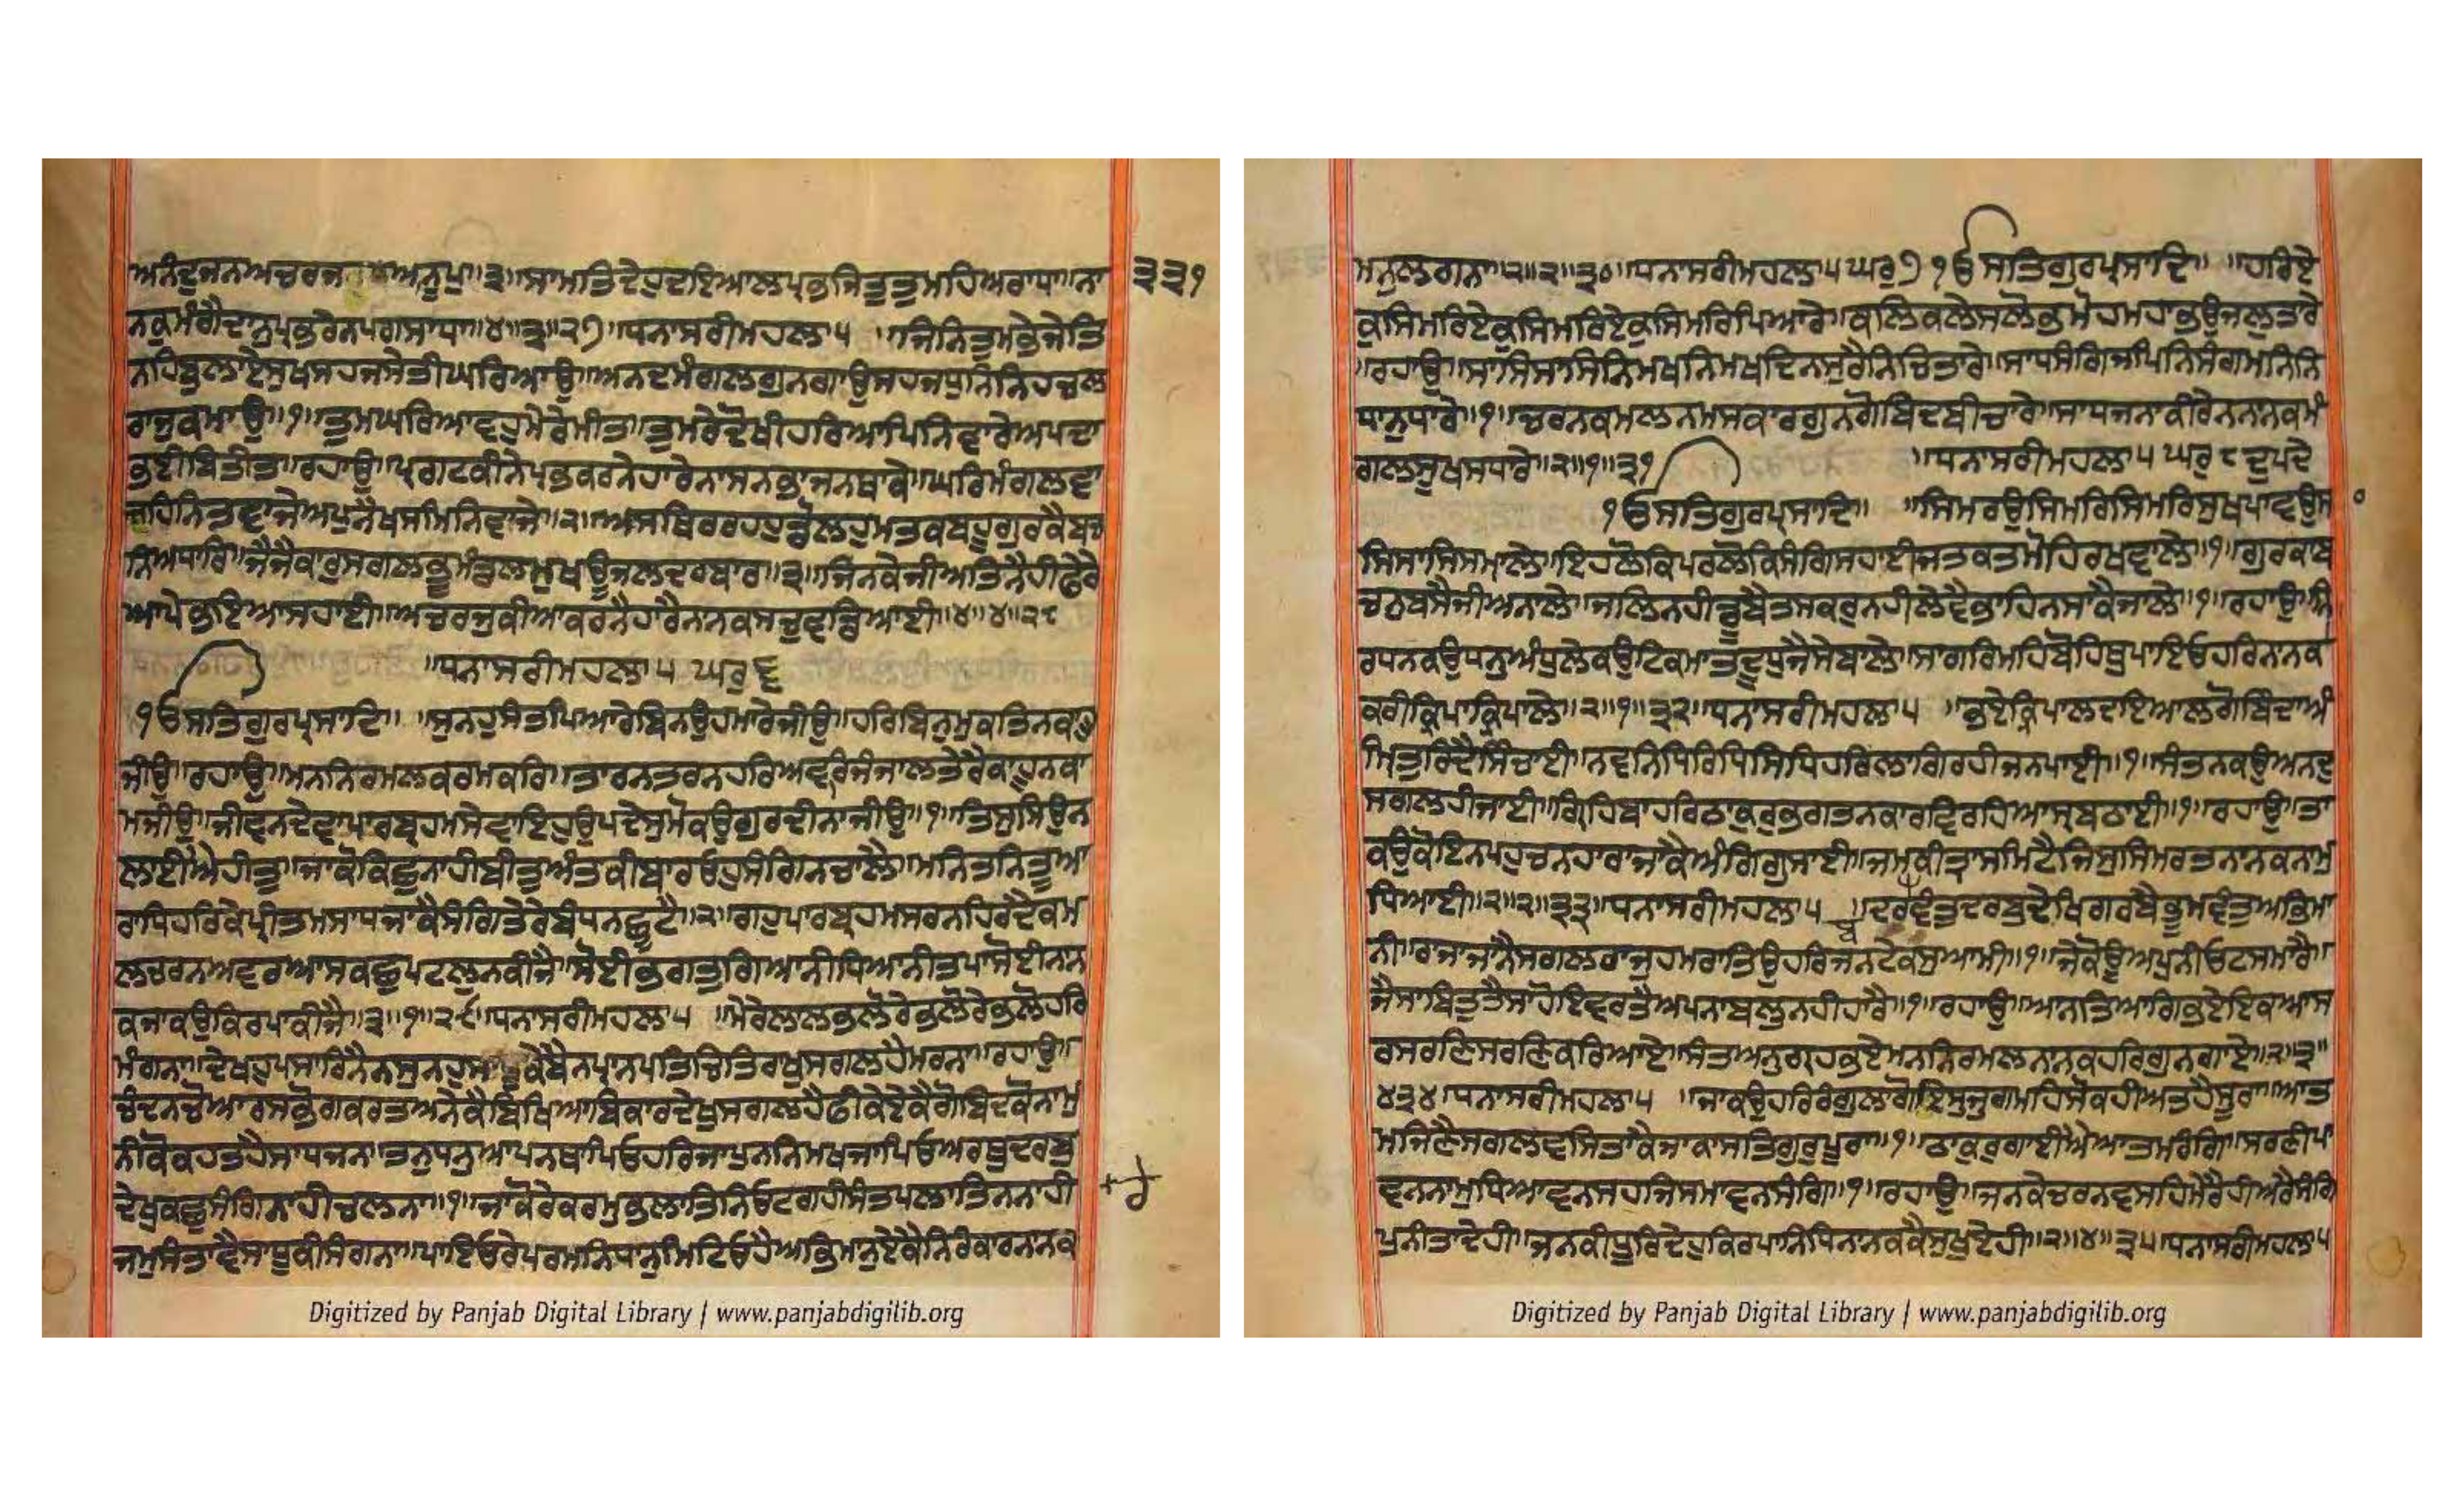 ਅਨੰਦੁਜਨਅਚਰਜਅਨੂਪਾ॥੩॥ਸਾਮਤਿਦੇਹੁਦਇਆਲਪ੍ਰਭਜਿਤੁਤੁਮਹਿਅਰਾਧਾ॥ਨਾ
੩੩੧
ਨਕੁਮੰਗੈਦਾਨੁਪ੍ਰਭਰੇਨਪਗਸਾਧਾ॥੪॥੩॥੨੭॥ਧਨਾਸਰੀਮਹਲਾ੫ ॥ਜਿਨਿਤੁਮਭੇਜੇਤਿ
ਨਹਿਬੁਲਾਏਸੁਖਸਹਜਸੇਤੀਘਰਿਆਉ॥ਅਨਦਮੰਗਲਗੁਨਗਾਉਸਹਜਧੁਨਿਨਿਹਚਲ
ਰਾਜੁਕਮਾਉ॥੧॥ਤੁਮਘਰਿਆਵਹੁਮੇਰੇਮੀਤ॥ਤੁਮਰੇਦੋਖੀਹਰਿਆਪਿਨਿਵਾਰੇਅਪਦਾ
ਭਈਬਿਤੀਤ॥ਰਹਾਉ॥ਪ੍ਰਗਟਕੀਨੇਪ੍ਰਭਕਰਨੇਹਾਰੇਨਾਸਨਭਾਜਨਥਾਕੇ॥ਘਰਿਮੰਗਲਵਾ
ਜਹਿਨਿਤਵਾਜੇਅਪੁਨੈਖਸਮਿਨਿਵਾਜੇ॥੨॥ਅਸਥਿਰਰਹਹੁਡੋਲਹੁਮਤਕਬਹੂਗੁਰਕੈਬਚ
ਨਿਅਧਾਰਿ॥ਜੈਜੈਕਾਰੁਸਗਲਭੂਮੰਡਲਮੁਖਊਜਲਦਰਬਾਰ॥੩॥ਜਿਨਕੇਜੀਅਤਿਨੈਹੀਫੇਰੇ
ਆਪੇਭਇਆਸਹਾਈ॥ਅਚਰਜੁਕੀਆਕਰਨੈਹਾਰੈਨਾਨਕਸਚੁਵਡਿਆਈ॥੪॥੪॥੨੮
॥ਧਨਾਸਰੀਮਹਲਾ੫ ਘਰੁ੬
੧ਓਸਤਿਗੁਰਪ੍ਰਸਾਦਿ॥ ॥ਸੁਨਹੁਸੰਤਪਿਆਰੇਬਿਨਉਹਮਾਰੇਜੀਉ॥ਹਰਿਬਿਨੁਮੁਕਤਿਨਕਾਹੂ
ਜੀਉ॥ਰਹਾਉ॥ਮਨਨਿਰਮਲਕਰਮਕਰਿ॥ਤਾਰਨਤਰਨਹਰਿਅਵਰਿਜੰਜਾਲਤੇਰੈਕਾਹੂਨਕਾ
ਮਜੀਉ॥ਜੀਵਨਦੇਵਾਪਾਰਬ੍ਰਹਮਸੇਵਾਇਹੁਉਪਦੇਸੁਮੋਕਉਗੁਰਦੀਨਾਜੀਉ॥੧॥ਤਿਸੁਸਿਉਨ
ਲਾਈਐਹੀਤੁ॥ਜਾਕੋਕਿਛੁਨਾਹੀਬੀਤੁਅੰਤਕੀਬਾਰਓਹੁਸੰਗਿਨਚਾਲੈ॥ਮਨਿਤਨਿਤੂਆ
ਰਾਧਿਹਰਿਕੇਪ੍ਰੀਤਮਸਾਧਜਾਕੈਸੰਗਿਤੇਰੇਬੰਧਨਛੂਟੈ॥੨॥ਗਹੁਪਾਰਬ੍ਰਹਮਸਰਨਹਿਰਦੈਕਮ
ਲਚਰਨਅਵਰਆਸਕਛੁਪਟਲੁਨਕੀਜੈ॥ਸੋਈਭਗਤੁਗਿਆਨੀਧਿਆਨੀਤਪਾਸੋਈਨਾਨ
ਕਜਾਕਉਕਿਰਪਾਕੀਜੈ॥੩॥੧॥੨੯॥ਧਨਾਸਰੀਮਹਲਾ੫ ॥ਮੇਰੇਲਾਲਭਲੋਰੇਭਲੋਰੇਭਲੋਹਰਿ
ਮੰਗਨਾ॥ਦੇਖਹੁਪਸਾਰਿਨੈਨਸੁਨਹੁਸਾਧੂਕੇਬੈਨਪ੍ਰਾਨਪਤਿਚਿਤਿਰਾਖੁਸਗਲਹੈਮਰਨਾ॥ਰਹਾਉ॥
ਚੰਦਨਚੋਆਰਸਭੋਗਕਰਤਅਨੇਕੈਬਿਖਿਆਬਿਕਾਰਦੇਖੁਸਗਲਹੈਫੀਕੇਏਕੈਗੋਬਿਦਕੋਨਾਮੁ
ਨੀਕੋਕਹਤਹੈਸਾਧਜਨ॥ਤਨੁਧਨੁਆਪਨਥਾਪਿਓਹਰਿਜਾਪੁਨਨਿਮਖਜਾਪਿਓਅਰਥੁਦਰਬੁ
ਦੇਖੁਕਛੁਸੰਗਿਨਾਹੀਚਲਨਾ॥੧॥ਜਾਕੋਰੇਕਰਮੁਭਲਾਤਿਨਿਓਟਗਹੀਸੰਤਪਲਾਤਿਨਨਾਹੀ
ਜਮੁਸੰਤਾਵੈਸਾਧੂਕੀਸੰਗਨਾ॥ਪਾਇਓਰੇਪਰਮਨਿਧਾਨੁਮਿਟਿਓਹੈਅਭਿਮਾਨੁਏਕੈਨਿਰੰਕਾਰਨਾਨਕ
ਮਨੁਲਗਨਾ॥੨॥੨॥੩੦॥ਧਨਾਸਰੀਮਹਲਾ੫ ਘਰੁ੭ ੧ਓਸਤਿਗੁਰਪ੍ਰਸਾਦਿ॥ ॥ਹਰਿਏ
ਕੁਸਿਮਰਿਏਕੁਸਿਮਰਿਏਕੁਸਿਮਰਿਪਿਆਰੇ॥ਕਲਿਕਲੇਸਲੋਭਮੋਹਮਹਾਭਉਜਲੁਤਾਰੇ
॥ਰਹਾਉ॥ਸਾਸਿਸਾਸਿਨਿਮਖਨਿਮਖਦਿਨਸੁਰੈਨਿਚਿਤਾਰੇ॥ਸਾਧਸੰਗਿਜਪਿਨਿਸੰਗਮਨਿਨਿ
ਧਾਨੁਧਾਰੇ॥੧॥ਚਰਨਕਮਲਨਮਸਕਾਰਗੁਨਗੋਬਿਦਬੀਚਾਰੇ॥ਸਾਧਜਨਾਕੀਰੇਨਨਾਨਕਮੰ
ਗਲਸੂਖਸਧਾਰੇ॥੨॥੧॥੩੧ ॥ਧਨਾਸਰੀਮਹਲਾ੫ ਘਰੁ੮ਦੁਪਦੇ
੧ਓਸਤਿਗੁਰਪ੍ਰਸਾਦਿ॥ ॥ਸਿਮਰਉਸਿਮਰਿਸਿਮਰਿਸੁਖਪਾਵਉਸਾ
ਸਿਸਾਸਿਸਮਾਲੇ॥ਇਹਲੋਕਿਪਰਲੋਕਿਸੰਗਿਸਹਾਈਜਤਕਤਮੋਹਿਰਖਵਾਲੇ॥੧॥ਗੁਰਕਾਬ
ਚਨੁਬਸੈਜੀਅਨਾਲੇ॥ਜਲਿਨਹੀਡੂਬੈਤਸਕਰੁਨਹੀਲੇਵੈਭਾਹਿਨਸਾਕੈਜਾਲੇ॥੧॥ਰਹਾਉ॥ਨਿ
ਰਧਨਕਉਧਨੁਅੰਧੁਲੇਕਉਟਿਕਮਾਤਦੂਧੁਜੈਸੇਬਾਲੇ॥ਸਾਗਰਮਹਿਬੋਹਿਥੁਪਾਇਓਹਰਿਨਾਨਕ
ਕਰੀਕ੍ਰਿਪਾਕ੍ਰਿਪਾਲੇ॥੨॥੧॥੩੨॥ਧਨਾਸਰੀਮਹਲਾ੫ ॥ਭਏਕ੍ਰਿਪਾਲਦਇਆਲਗੋਬਿੰਦਾਅੰ
ਮ੍ਰਿਤੁਰਿਦੈਸਿੰਚਾਈ॥ਨਵਨਿਧਿਰਿਧਿਸਿਧਿਹਰਿਲਾਗਿਰਹੀਜਨਪਾਈ॥੧॥ਸੰਤਨਕਉਅਨਦੁ
ਸਗਲਹੀਜਾਈ॥ਗ੍ਰਿਹਿਬਾਹਰਿਠਾਕੁਰੁਭਗਤਨਕਾਰਵਿਰਹਿਆਸ੍ਰਬਠਾਈ॥੧॥ਰਹਾਉ॥ਤਾ
ਕਉਕੋਇਨਪਹੁਚਨਹਾਰਾਜਾਕੈਅੰਗਿਗੁਸਾਈ॥ਜਮਕੀਤ੍ਰਾਸਮਿਟੈਜਿਸੁਸਿਮਰਤਨਾਨਕਨਾਮੁ
ਧਿਆਈ॥੨॥੨॥੩੩॥ਧਨਾਸਰੀਮਹਲਾ੫ ॥ਦਰਵੰਤੁਦਰਬੁਦੇਖਿਗਰਬੈਭੂਮਵੰਤੁਅਭਿਮਾ
ਨੀ॥ਰਾਜਾਜਾਨੈਸਗਲਰਾਜੁਹਮਰਾਤਿਉਹਰਿਜਨਟੇਕਸੁਆਮੀ॥੧॥ਜੇਕੋਊਅਪੁਨੀਓਟਸਮਾਰੈ॥
ਜੈਸਾਬਿਤੁਤੈਸਾਹੋਇਵਰਤੈਅਪਨਾਬਲੁਨਹੀਹਾਰੈ॥੧॥ਰਹਾਉ॥ਆਨਤਿਆਗਿਭਏਇਕਆਸ
ਰਸਰਣਿਸਰਣਿਕਰਿਆਏ॥ਸੰਤਅਨੁਗ੍ਰਹਭਏਮਨਨਿਰਮਲਨਾਨਕਹਰਿਗੁਨਗਾਏ॥੨॥੩॥
੪੩੪॥ਧਨਾਸਰੀਮਹਲਾ੫ ॥ਜਾਕਉਹਰਿਰੰਗੁਲਾਗੋਇਸੁਜੁਗਮਹਿਸੋਕਹੀਅਤਹੈਸੂਰਾ॥ਆਤ
ਮਜਿਣੈਸਗਲਵਸਿਤਾਕੈਜਾਕਾਸਤਿਗੁਰੁਪੂਰਾ॥੧॥ਠਾਕੁਰੁਗਾਈਐਆਤਮਰੰਗਿ॥ਸਰਣੀਪਾ
ਵਨਨਾਮੁਧਿਆਵਨਸਹਜਿਸਮਾਵਨਸੰਗਿ॥੧॥ਰਹਾਉ॥ਜਨਕੇਚਰਨਵਸਹਿਮੇਰੈਹੀਅਰੈਸੰਗਿ
ਪੁਨੀਤਾਦੇਹੀ॥ਜਨਕੀਧੂਰਿਦੇਹੁਕਿਰਪਾਨਿਧਿਨਾਨਕਕੈਸੁਖੁਏਹੀ॥੨॥੪॥੩੫॥ਧਨਾਸਰੀਮਹਲਾ੫
Digitized by Panjab Digital Library | www.panjabdigilib.org
Digitized by Panjab Digital Library | www.panjabdigilib.org